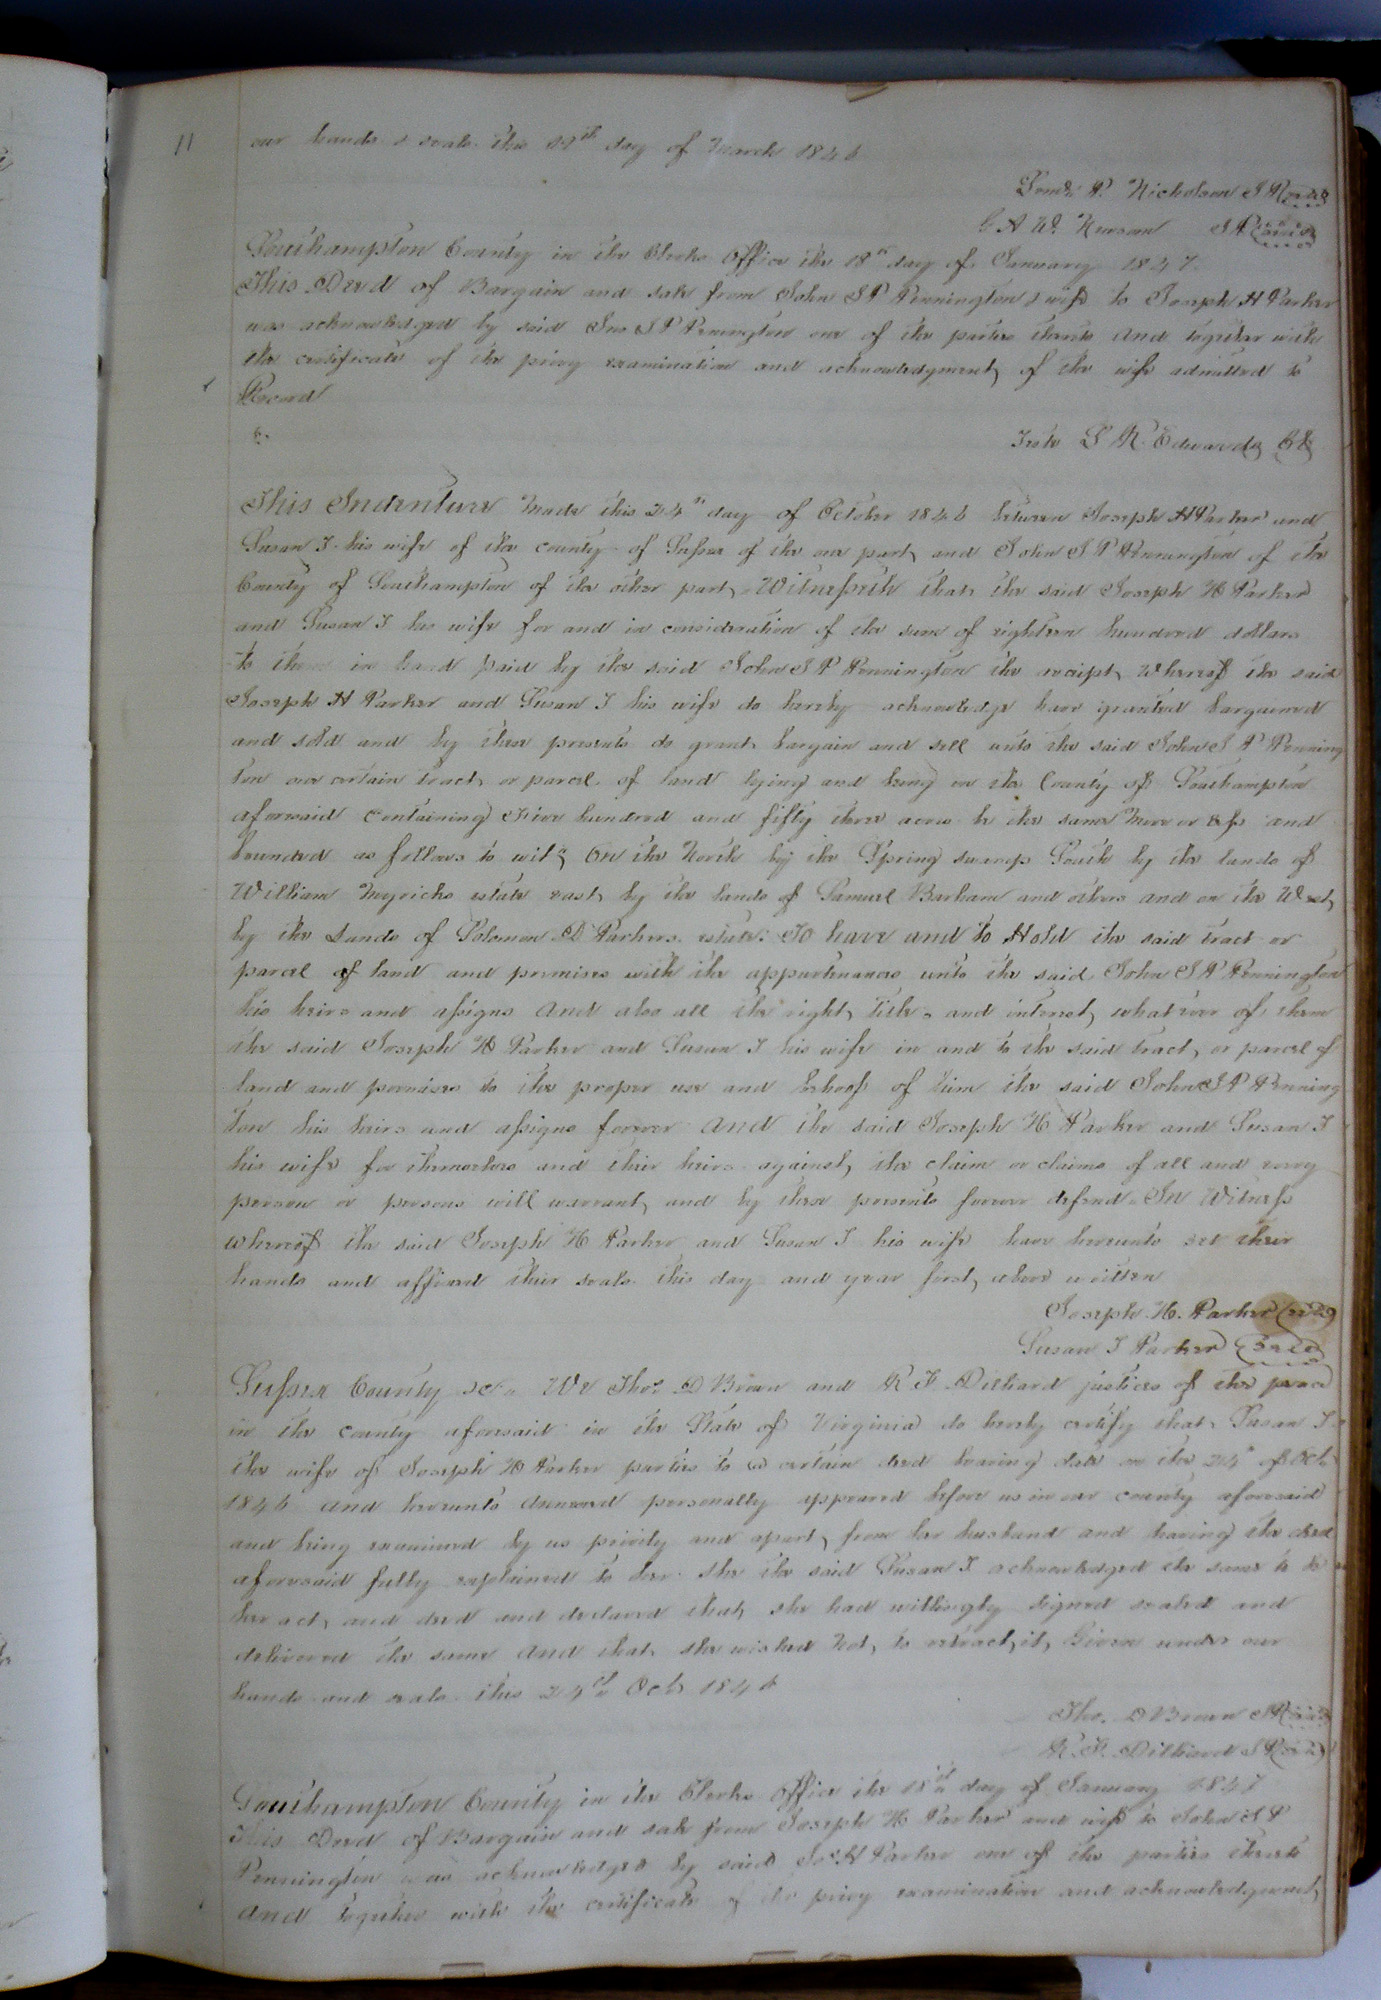 11
our hands & seals this 19th day of March 1846
P. Nicholson JP (seal)
G A W. Newsom JP (seal)
Southampton County in the Clerks Office the 18th day of January 1847.
This Deed of Bargain and sale from John S P Pennington & wife to Joseph H Parker
was acknowledged by said Jno S P Pennington one of the parties thereto and together with
the certificate of the privy examination and acknowledgement of the wife admitted to
Record
Teste L R. Edwards Clk
This Indenture Made this 24th day of October 1846 between Joseph H Parker and
Susan J his wife of the county of Sussex of the one part and John S P Pennington of the
County of Southampton of the other part, Witnesseth that the said Joseph H Parker
and Susan J his wife for and in consideration of the sum of eighteen hundred dollars
to them in hand paid by the said John S P Pennington the receipt whereof the said
Joseph H Parker and Susan J his wife do hereby acknowledge have granted bargained
and sold and by these presents do grant bargain and sell unto the said John S P Penning
ton one certain tract or parcel of land lying and being in the County of Southampton
aforesaid containing Five hundred and fifty three acres be the same More or less and
bounded as follows to wit, On the North by the Spring swamp South by the lands of
William Myricks estate east by the lands of Samuel Barham and others and on the West
by the Lands of Solomon D Parkers estate: To have and to Hold the said tract or
parcel of land and premises with the appurtenances unto the said John S P Pennington
his heirs and assigns and also all the right, title, and interest whatever of them
the said Joseph H Parker and Susan J his wife in and to the said tract or parcel of
land and premises to the proper use and behoof of him the said John S P Penning
ton his heirs and assigns forever And the said Joseph H Parker and Susan J
his wife for themselves and their heirs against the claim or claims of all and every
person or persons will warrant and by these presents forever defend. In Witness
whereof the said Joseph H Parker and Susan J his wife have hereunto set their
hands and affixed their seals this day and year first above written
Joseph H. Parker (seal)
Susan J Parker (seal)
Sussex County sct. We Thos. D Brown and R F Dillard justices of the peace
in the county aforesaid in the State of Virginia do hereby certify that Susan J
the wife of Joseph H Parker parties to a certain deed bearing date on the 24th of Oct
1846 and hereunto annexed personally appeared before us in our county aforesaid
and being examined by us privily and apart from her husband and having the deed
aforesaid fully explained to her she the said Susan J acknowledged the same to be
her act and deed and declared that she had willingly signed sealed and
delivered the same and that she wished Not to retract it, Given under our
hands and seals this 24th Oct 1846
Tho. D Brown JP (seal)
R. F. Dillard JP (seal)
Southampton County in the Clerks Office the 18th day of January 1847
This Deed of Bargain and sale from Joseph H Parker and wife to John S P
Pennington was acknowledged by said Jos H Parker one of the parties thereto
and together with the certificate of the privy examination and acknowledgement